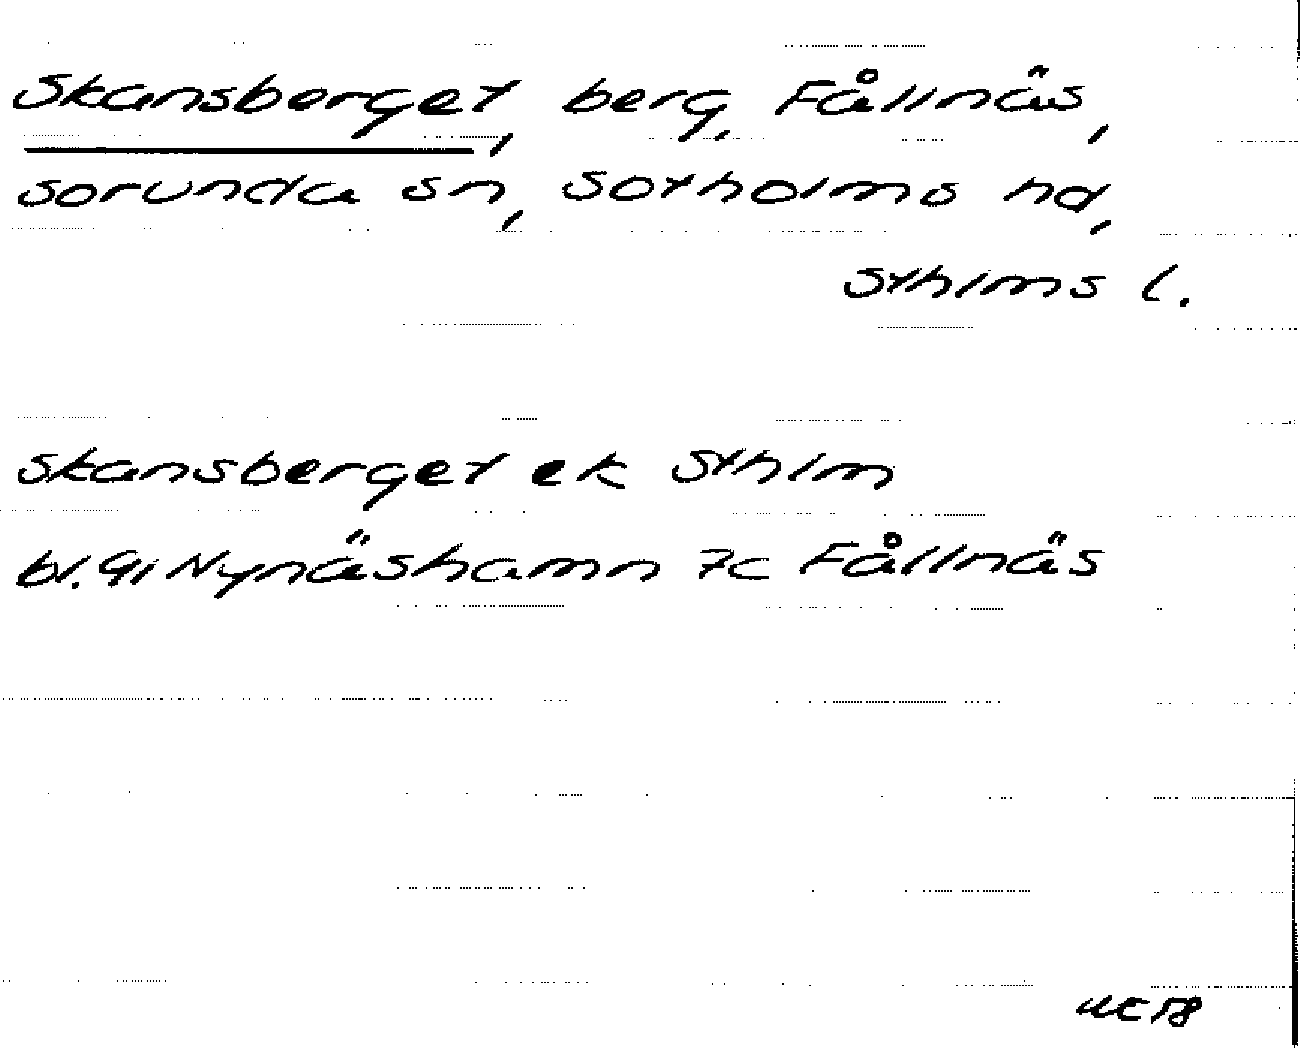 Skansberget, berg, Fållnäs,
Sorunda sn, Sotholms hd,
Sthlms l.
Skansberget ek Sthlm
bl. 9i Nynäshamn 7c Fållnäs